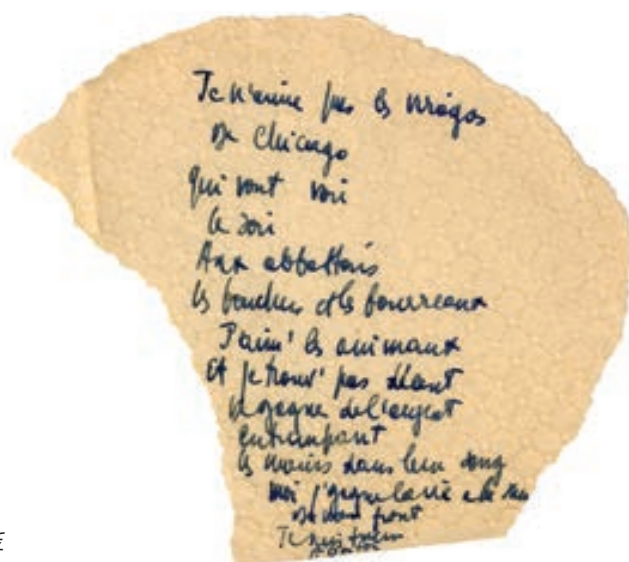 Je n'aime pas les viragos
de Chicago
qui vont voir
le soir
Aux abbattoirs
les bouchers et les bourreaux
J'aim' les animaux
Et je trouv' pas décent
de gagner de l'argent
en trempant
les mains dans leur sang
moi j'gagne la vie à la
de mon front
Je suis